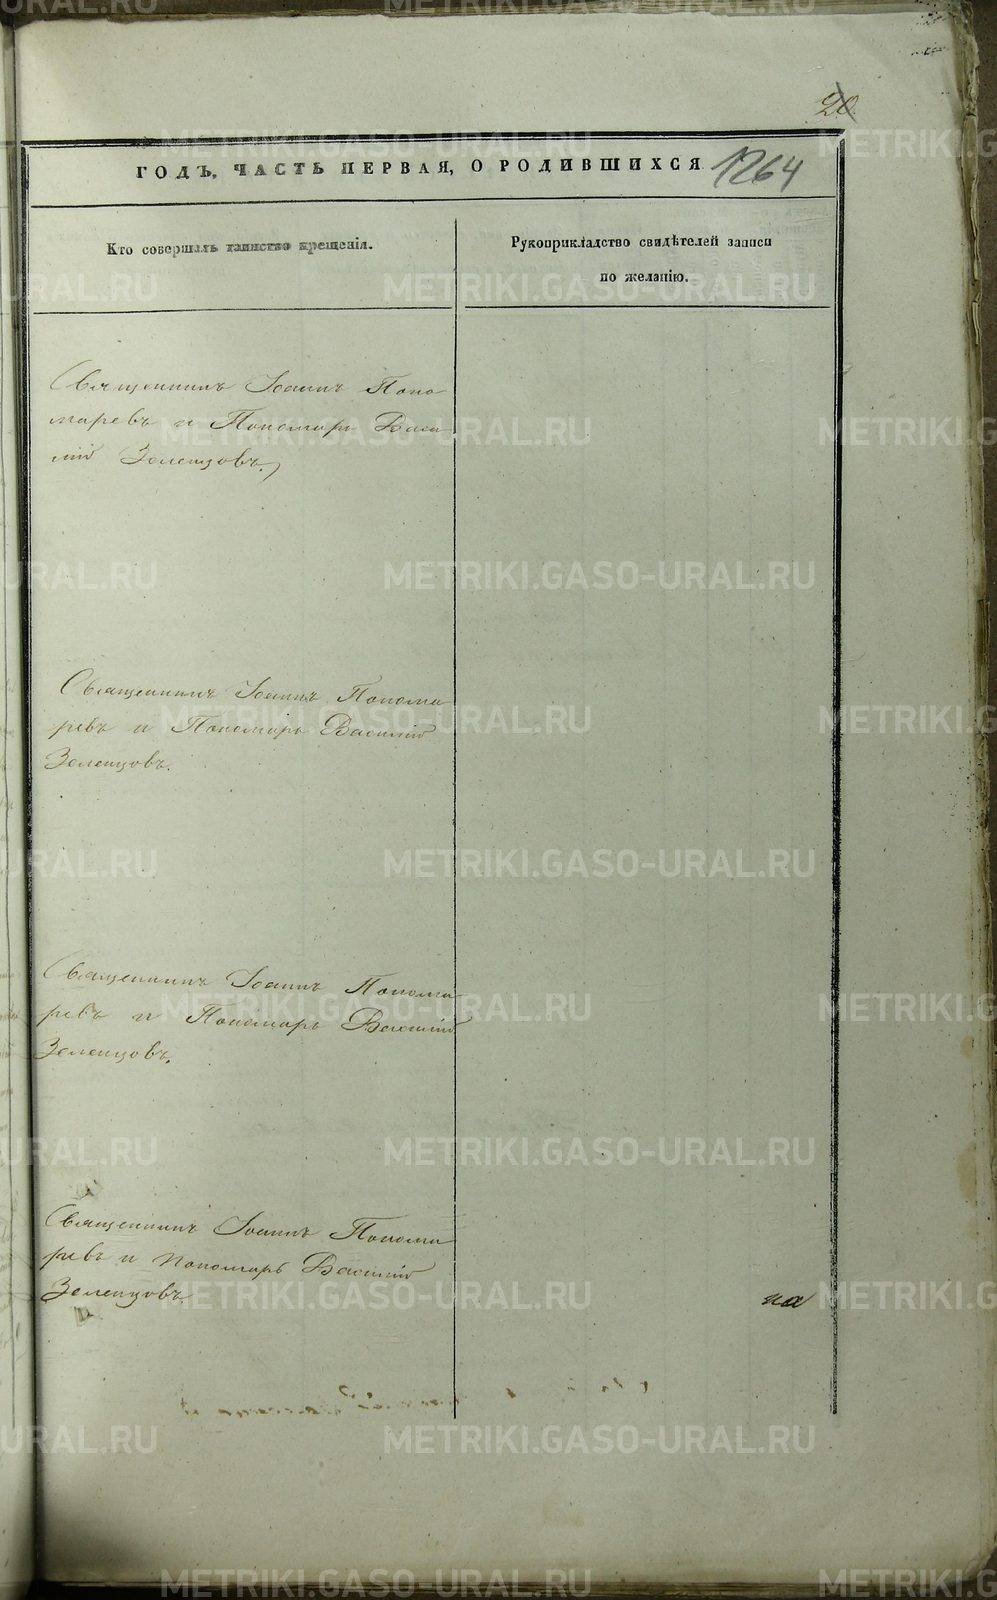 20
ГОДЪ, ЧАСТЬ ПЕРВАЯ, О РОДИВШИХСЯ 1264
Кто совершалъ таинство крещенія.
Рукоприкладство свидѣтелей записи
по желанію.
Священникъ Іоаннъ Поно-
маревъ и Пономарь Васи-
лій Зеленцовъ.
Священникъ Іоаннъ Понома
ревъ и Пономарь Василій
Зеленцовъ.
Священникъ Іоаннъ Понома
ревъ и Пономарь Василій
Зеленцовъ.
Священникъ Іоаннъ Понома
ревъ и пономарь Василій
Зеленцовъ.
на
METRIKI.GASO-URAL.RU